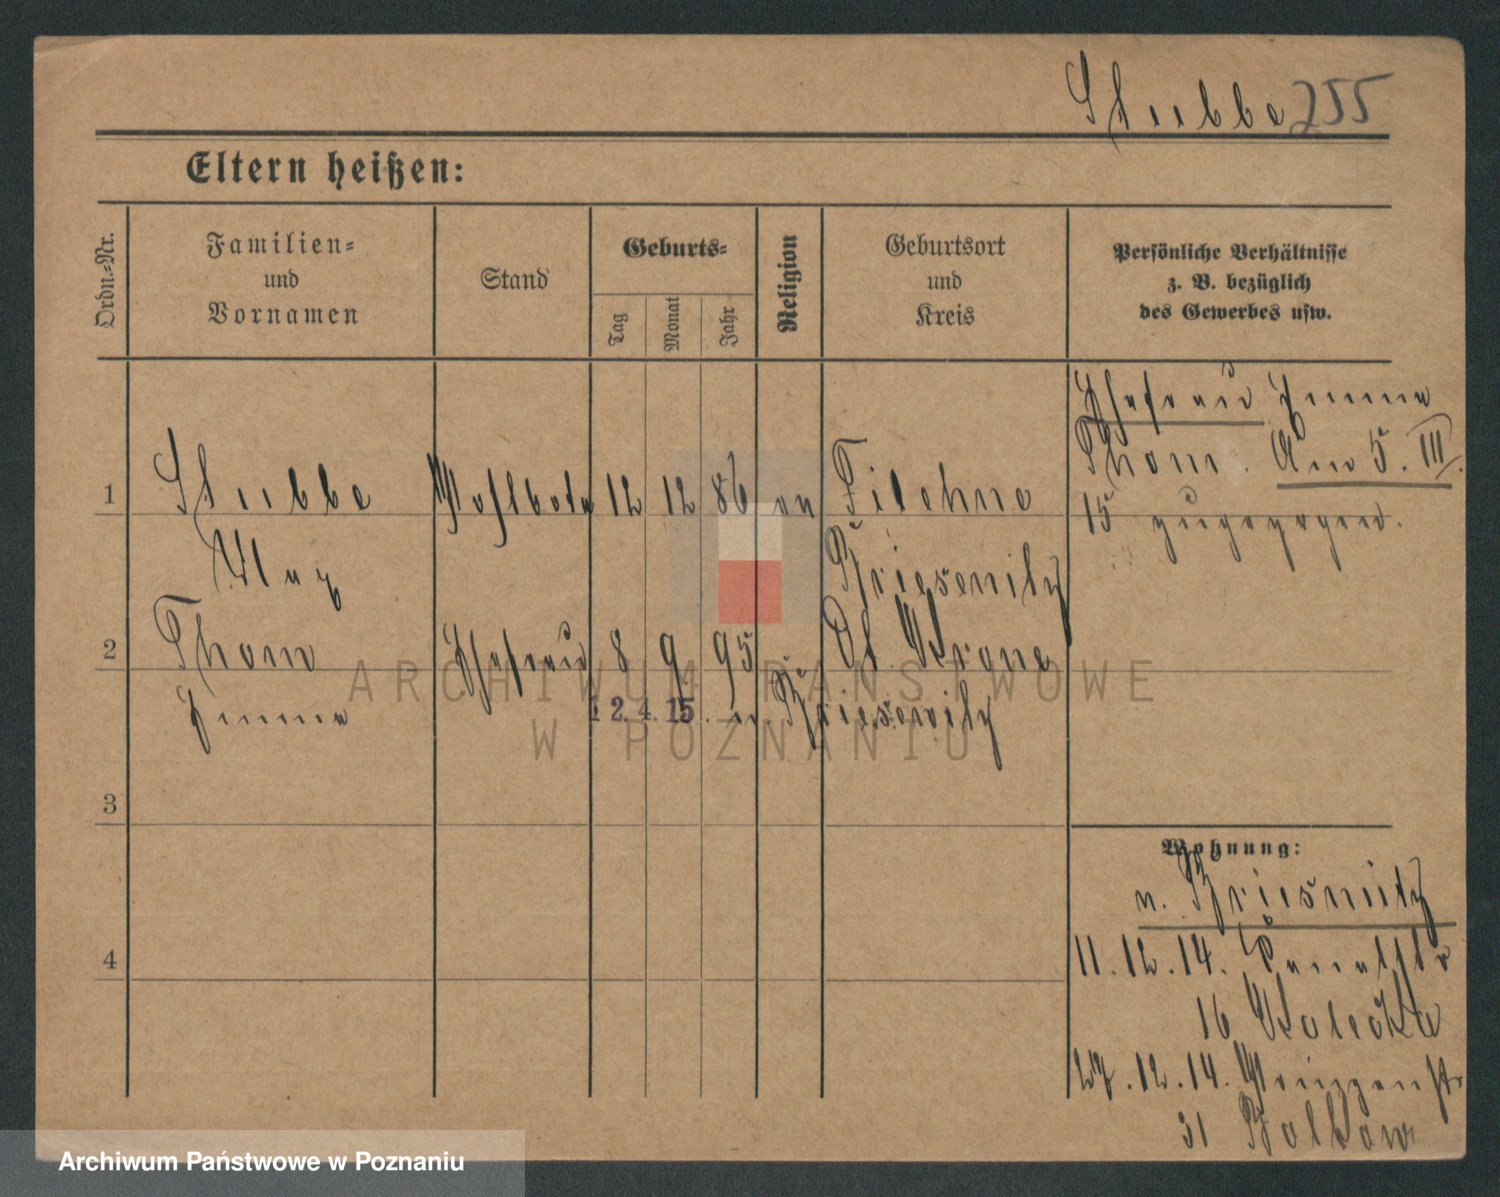 Stubbe 255
Eltern heißen:
Ordn.=Nr.
Familien=
und
Vornamen
Stand
Geburts=
Tag
Monat
Jahr
Religion
Geburtsort
und
Kreis
Persönliche Verhältnisse
z. B. bezüglich
des Gewerbes usw.
Ehefrau Emma
Thom. Am 5. III.
15 zugezogen.
1
Stubbe
12 12 86
Filehne
Max
Briesenitz
2
Thom
Ehefrau
8 9 95
Dt. Krone
Emma
12. 4. 15. n. Briesenitz
3
Wohnung:
n. Briesnitz
4
11. 12. 14.
16
27. 12. 14.
31
ARCHIWUM PAŃSTWOWE
W POZNANIU
Archiwum Państwowe w Poznaniu